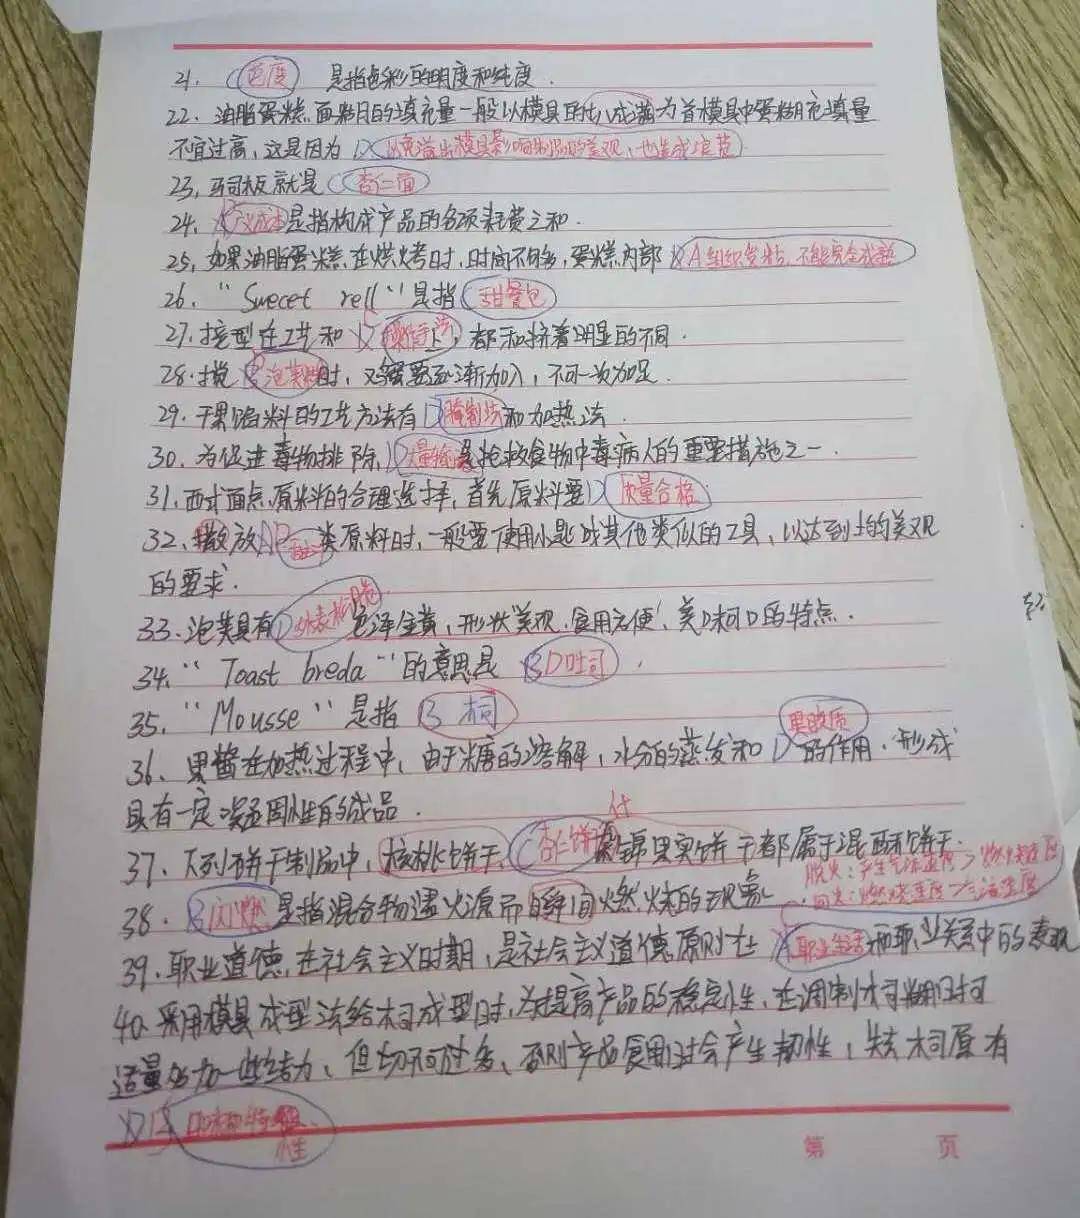 21. C色度 是指色彩的明度和纯度.
22. 油脂蛋糕面糊的填充量一般以模具的七八成满为首模具中蛋糊充填量
不宜过高,这是因为D以免溢出模具影响制品的美观,也造成浪费
23, 玛司板就是C杏仁面
24, B广义成本是指构成产品的各项耗费之和.
25, 如果油脂蛋糕在烘烤时,时间不够,蛋糕内部A组织发粘,不能完全成熟
26. "Swecet rell"是指C甜餐包
27. 捏型在工艺和操作手法,都和挤着明显的不同.
28. 搅B泡芙糊时,鸡蛋要逐渐加入,不可一次加足.
29. 干果馅料的工艺方法有D腌制法和加热法.
30. 为促进毒物排除,D大量输液是抢救食物中毒病人的重要措施之一.
31. 西式面点原料的合理选择,首先原料要D质量合格
32. 撒放B 类原料时,一般要使用小匙或其他类似的工具,以达到上的美观
的要求.
33. 泡芙具有D外表松脆,色泽金黄,形状美观,食用方便,美D柯D的特点.
34. "Toast breda"的意思是D吐司.
35. "Mousse"是指B木司
36. 果酱在加热过程中,由于糖的溶解,水分的蒸发和D果胶质的作用.形成
具有一定凝固性的成品.
什
37. 下列饼干制品中,核桃饼干,C杏仁饼干,杂锦果实饼干都属于混酥饼干.
脱火:产生气流速度>燃烧速度
38. B闪燃是指混合物遇火源而瞬间燃烧的现象. 回火:燃烧速度>气流速度
39. 职业道德,在社会主义时期,是社会主义道德原则在A职业生活和职业关系中的表现
40. 采用模具成型法给木司成型时,为提高产品的稳定性,在调制木司糊时可
适量多加一些结力,但切不可过多,否则产品食用时会产生韧性,失去木司原有
B口味和特性.
第 页